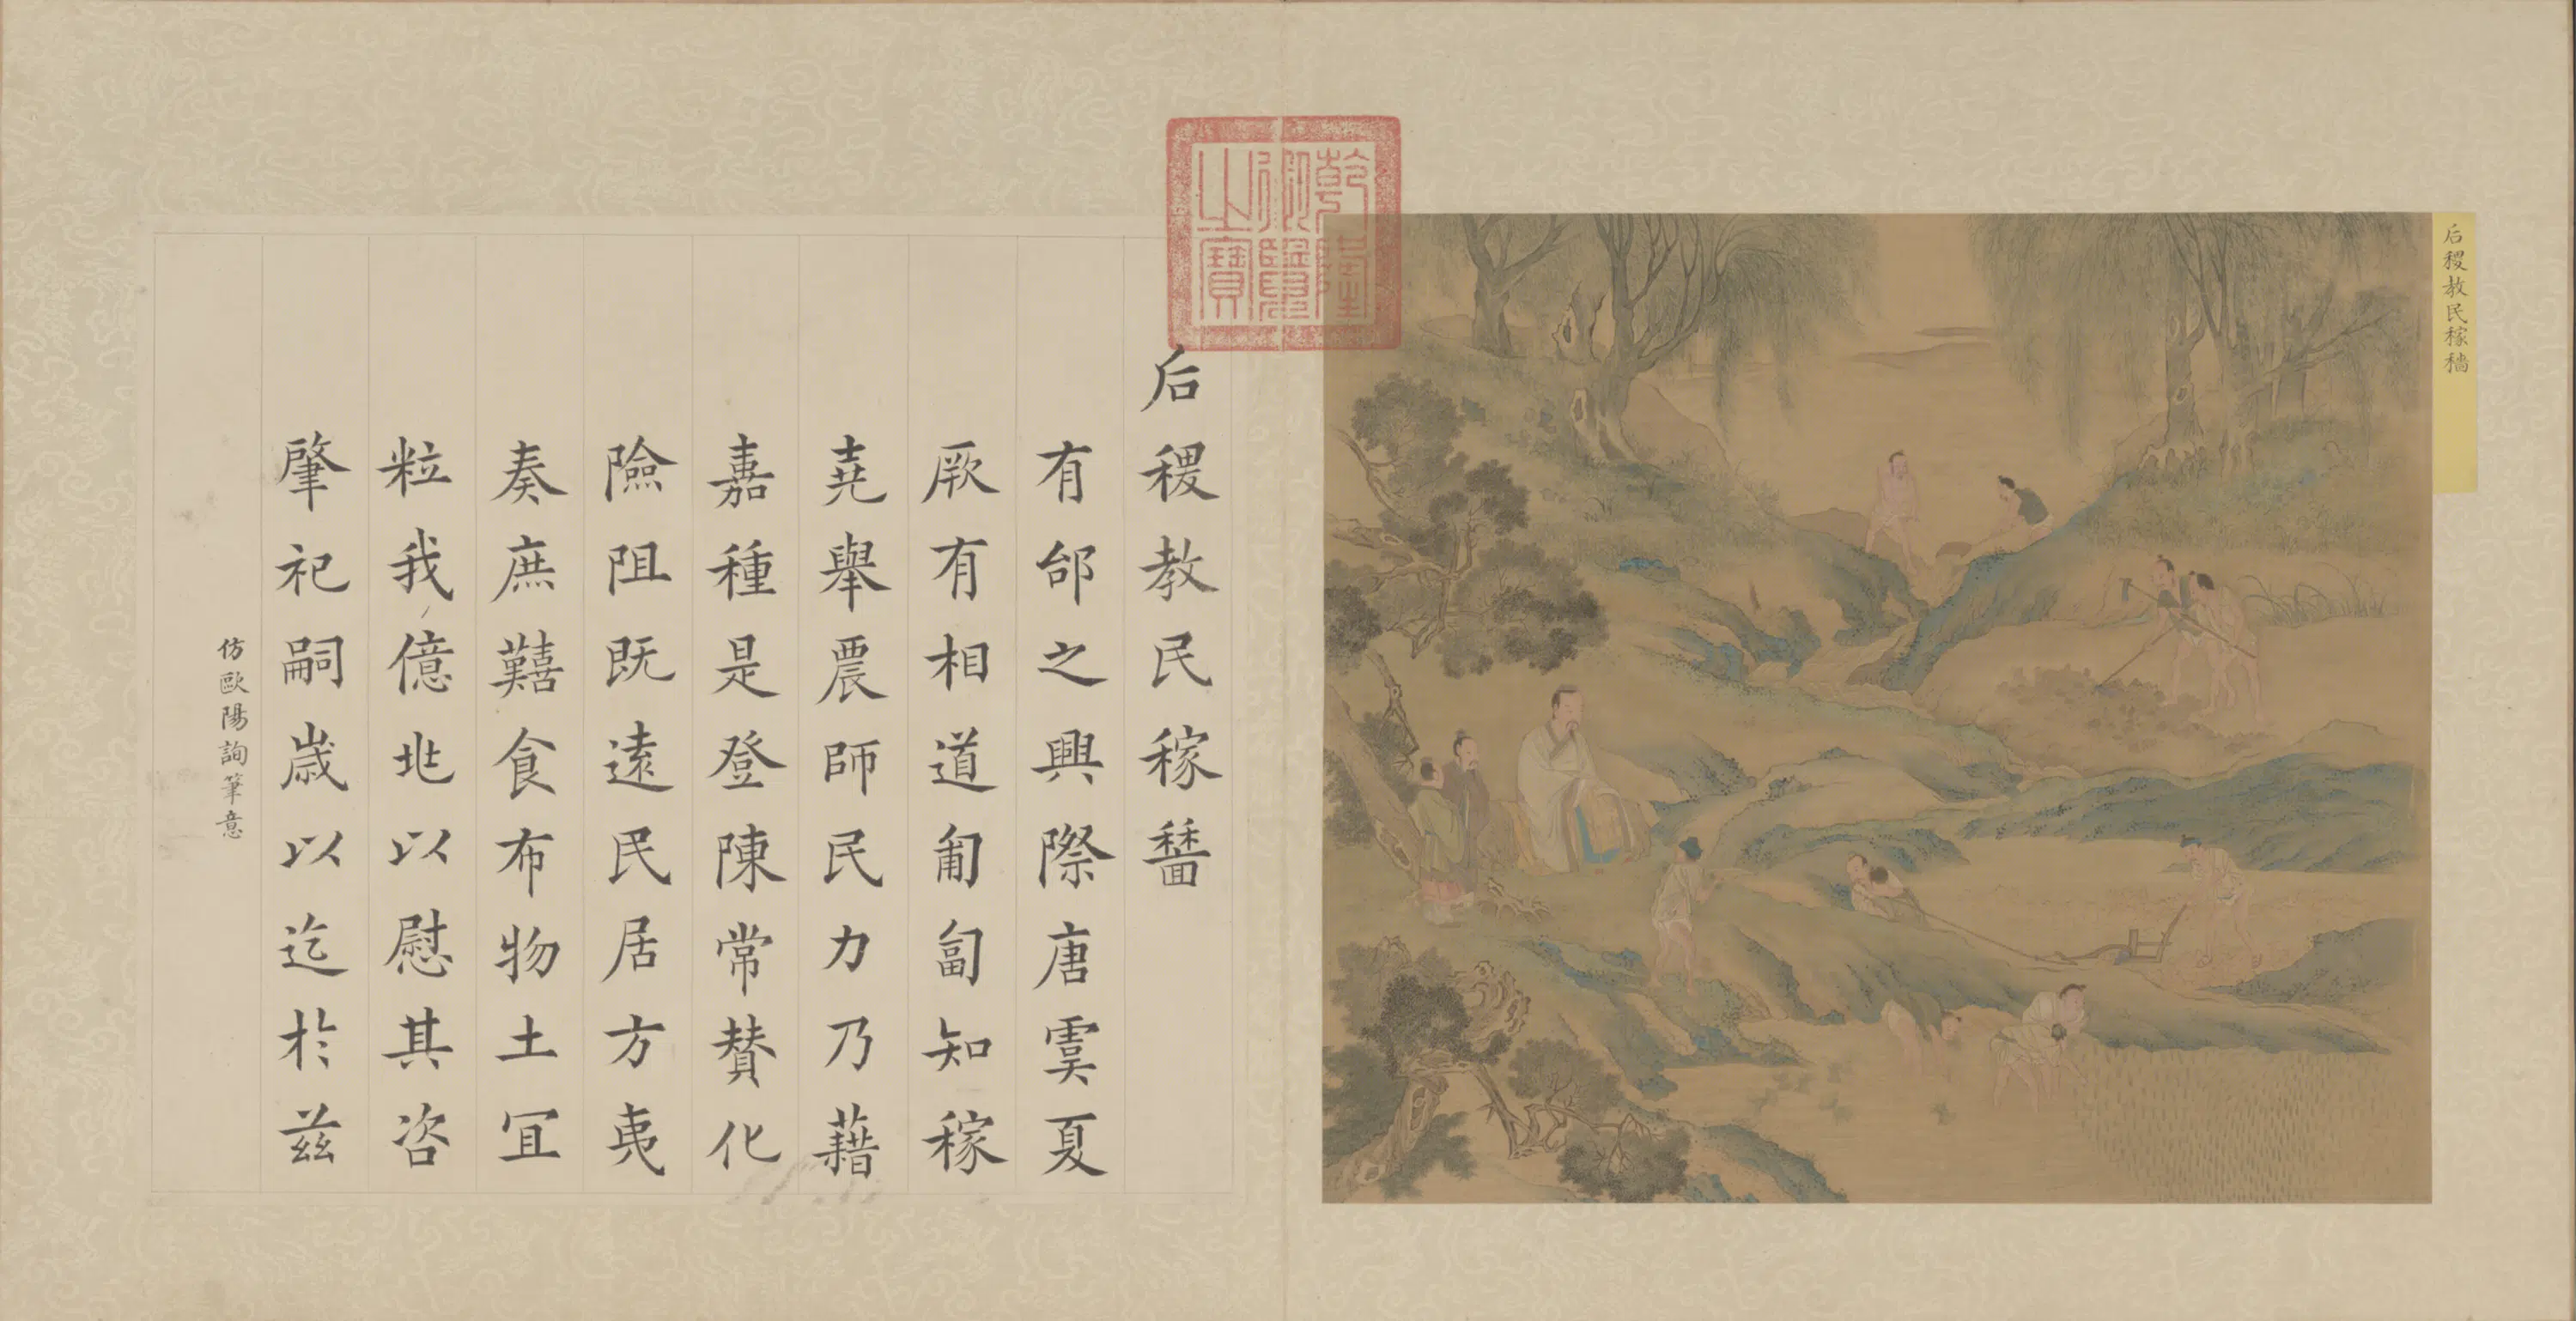 后稷教民稼穡
乾隆御覽之寶
后稷教民稼穡
有邰之興際唐虞夏
厥有相道匍匐知稼
堯舉農師民力乃藉
嘉種是登陳常贊化
險阻既遠民居方夷
奏庶囏食布物土宜
粒我億兆以慰其咨
肇祀嗣歲以迄於茲
仿歐陽詢筆意